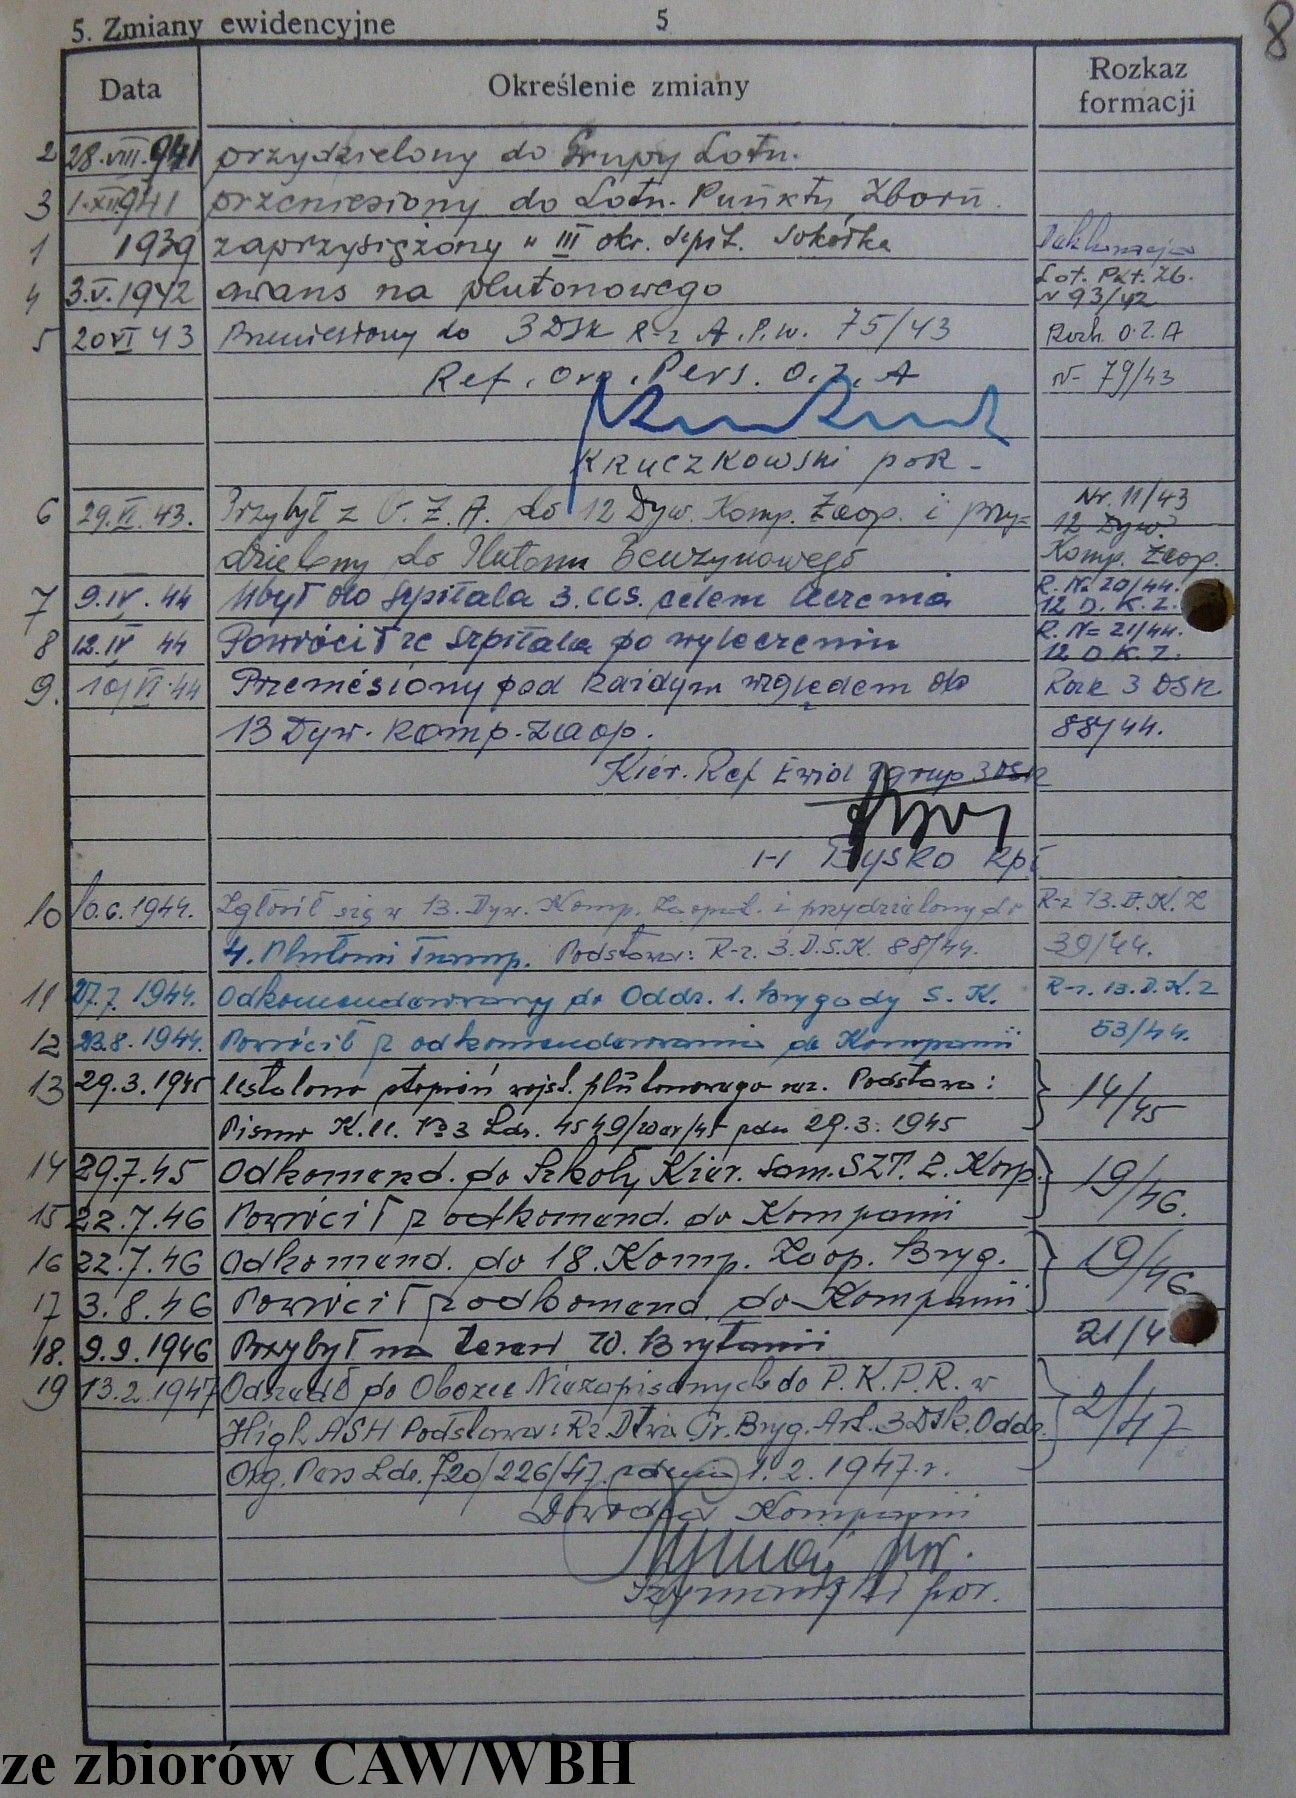 5. Zmiany ewidencyjne 5 8
Data Określenie zmiany Rozkaz formacji
2 28.VIII.941 przydzielony do Grupy Lotn.
3 1.XII.941 przeniesiony do Lotn. Punktu Zborn.
1 1939 zaprzysiężony w III okr. Sokółka
4 3.V.1942 awans na plutonowego Lot. Pkt. Zb. N 93/42
5 20 VI 43 Przeniesiony do 3 DSK R-z A.P.W. 75/43 Rozk. O.Z.A
Ref. Org. Pers. O.Z.A N- 79/43
KRUCZKOWSKI poR-
6 29.VI.43. Przybył z O.Z.A. do 12 Dyw. Komp. Zaop. i przy= Nr. 11/43 12 Dyw.
dzielony do Plutonu Benzynowego Komp. Zaop.
7 9.IV.44 Ubył do szpitala 3.CCS. celem leczenia R. № 20/44. 12 D.K.Z.
8 12.IV 44 Powrócił ze Szpitala po wyleczeniu R. N= 21/44. 12 D.K.Z.
9. 10/VI 44 Przeniesiony pod każdym względem do Rozk 3 DSK
13 Dyw. Komp. Zaop. 88/44.
Kier. Ref Ewid Zgrup 3DSK
Łysko kpt
10 10.6.1944. Zgłosił się w 13. Dyw. Komp. Zaopat. i przydzielony do R-z 13.D.K.Z
4. Plutonu Transp. Podstawa: R-z. 3.D.S.K. 88/44. 39/44.
11 27.7.1944. Odkomenderowany do Oddz. 1. Brygady S.K. R-z. 13.D.K.Z
12 23.8.1944. Powrócił z odkomenderowania do Kompanii 53/44.
13 29.3.1945 Ustalono stopień wojsk. plutonowego rez. Podstawa: 14/45
Pismo K.U. № 3 Ldz. 4549/war/45 z dn 29.3.1945
14 29.7.45 Odkomend. do Szkoły Kier. Sam. SZT. 2. Korp. 19/46.
15 22.7.46 Powrócił z odkomend. do Kompanii
16 22.7.46 Odkomend. do 18. Komp. Zaop. Bryg. 19/46
17 3.8.46 Powrócił z odkomend. do Kompanii
18. 9.9.1946 Przybył na teren W. Brytanii 21/4
19 13.2.1947 Odszedł do Obozu Niezapisanych do P.K.P.R. w 2/47
High ASH Podstawa: Rz. Dtwa Gr. Bryg. Art. 3 Dsk. Oddz.
Org. Pers Ldz. 720/226/47 z dnia 1.2.1947.r.
Dowódca Kompanii
Szymański por.
ze zbiorów CAW/WBH